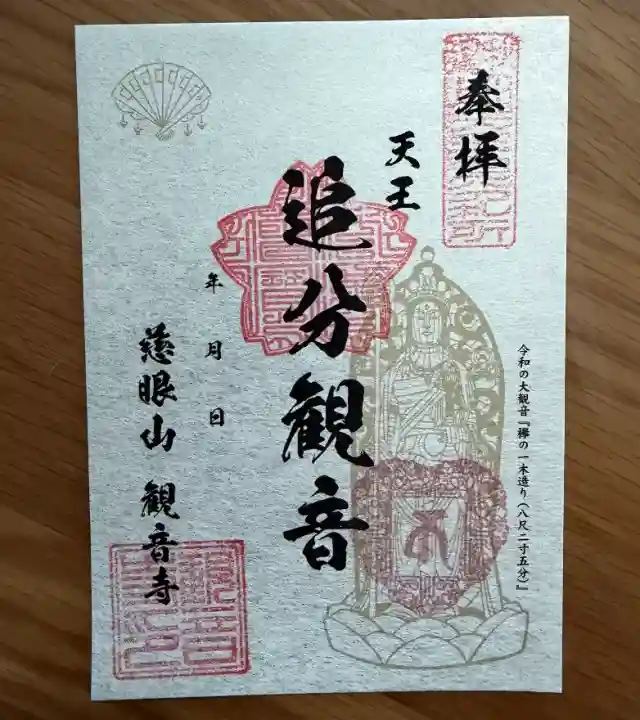 奉拝
令和の大観音『欅の一木造り(八尺二寸五分)』
天王
追分観音
年 月 日
慈眼山 観音寺